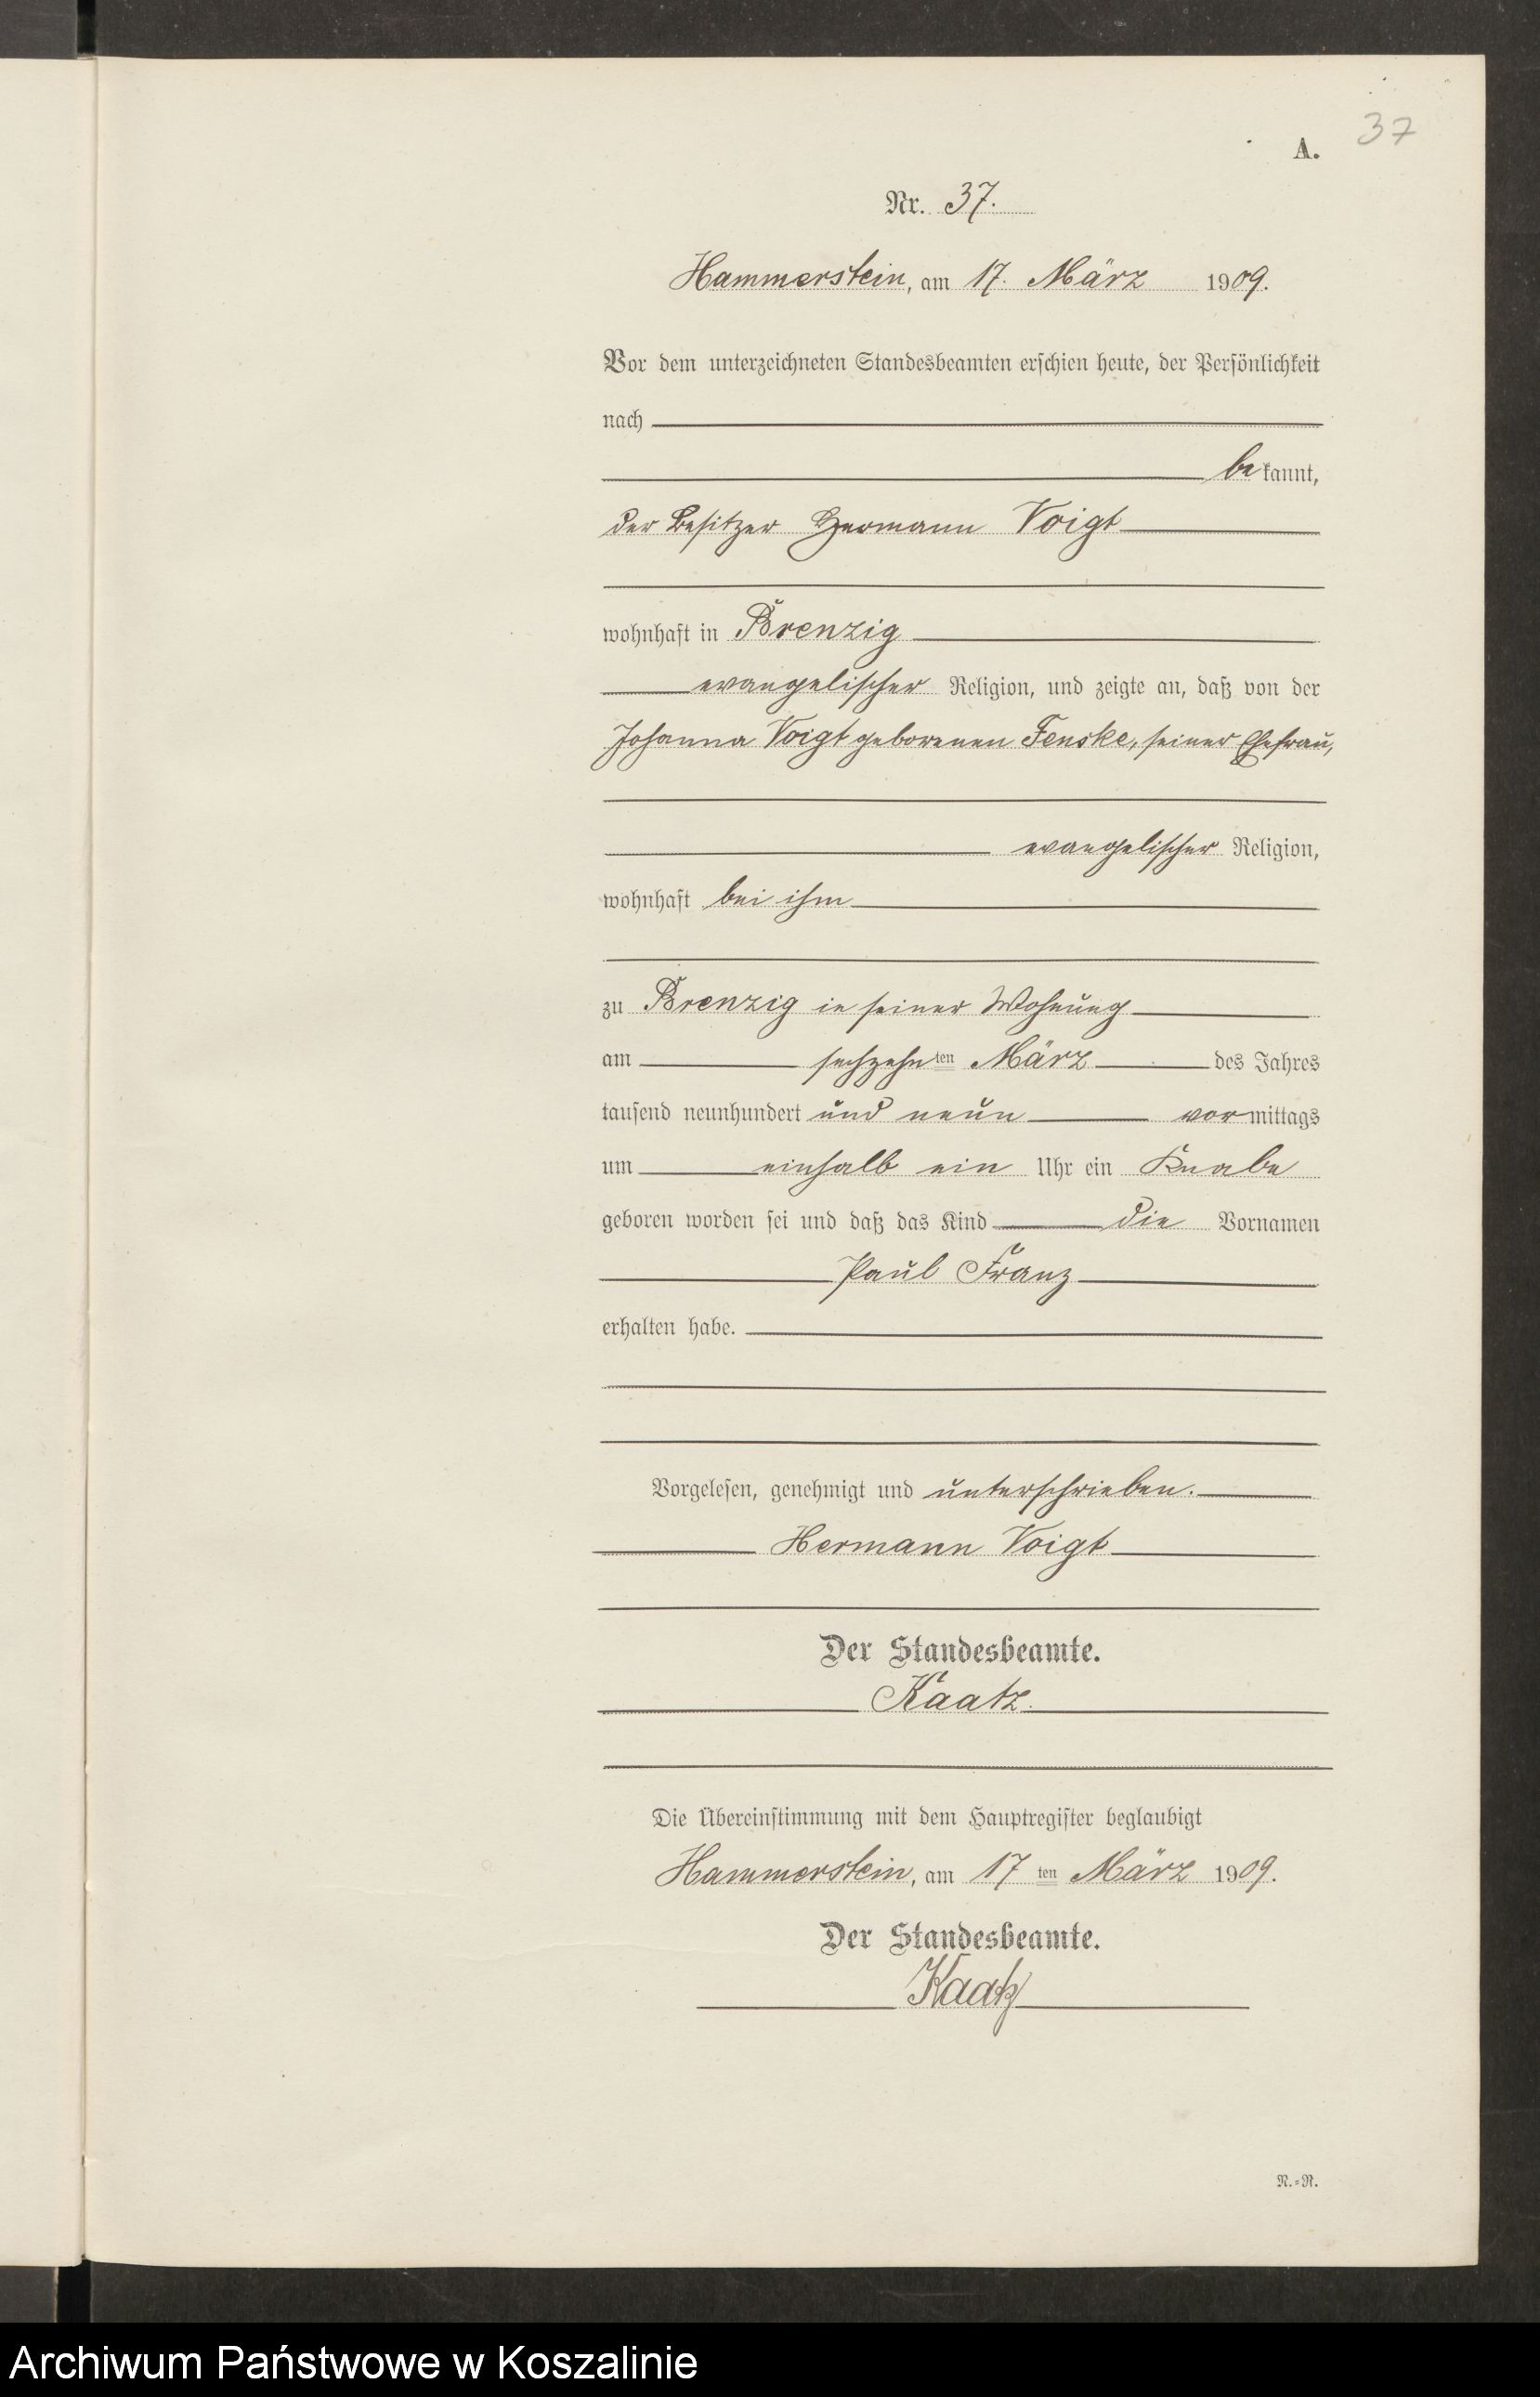 37
A.
Nr. 37.
Hammerstein, am 17. März 1909.
Vor dem unterzeichneten Standesbeamten erschien heute, der Persönlichkeit
nach
bekannt,
der Besitzer Hermann Voigt
wohnhaft in Brenzig
evangelischer Religion, und zeigte an, daß von der
Johanna Voigt geborenen Fenske, seiner Ehefrau,
evangelischer Religion,
wohnhaft bei ihm
zu Brenzig in seiner Wohnung
am sechzehnten März des Jahres
tausend neunhundert und neun vormittags
um einhalb ein Uhr ein Knabe
geboren worden sei und daß das Kind die Vornamen
Paul Franz
erhalten habe.
Vorgelesen, genehmigt und unterschrieben.
Hermann Voigt
Der Standesbeamte.
Kaatz.
Die Übereinstimmung mit dem Hauptregister beglaubigt
Hammerstein, am 17ten März 1909.
Der Standesbeamte.
Kaatz
N.=R.
Archiwum Państwowe w Koszalinie